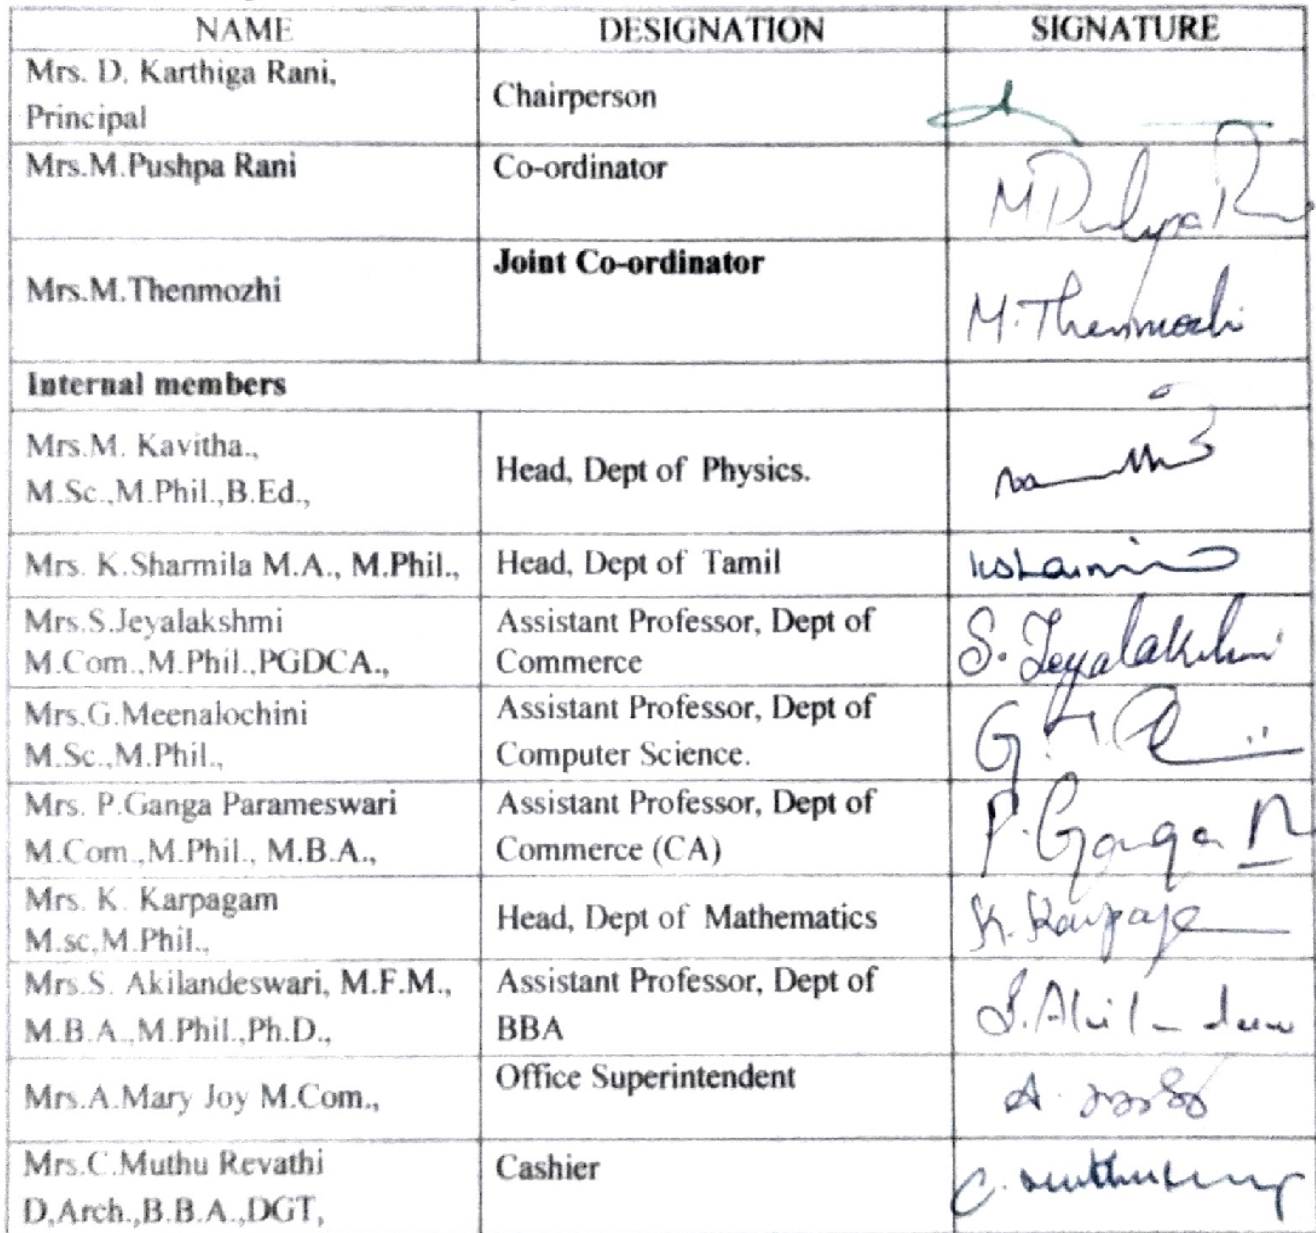 NAME DESIGNATION SIGNATURE
Mrs. D. Karthiga Rani,
Principal
Chairperson
Mrs.M.Pushpa Rani
Co-ordinator
M Pushpa R
Mrs.M.Thenmozhi
Joint Co-ordinator
M.Thenmozhi
Internal members
Mrs.M. Kavitha.,
M.Sc.,M.Phil.,B.Ed.,
Head, Dept of Physics.
Mrs. K.Sharmila M.A., M.Phil.,
Head, Dept of Tamil
Mrs.S.Jeyalakshmi
M.Com.,M.Phil.,PGDCA.,
Assistant Professor, Dept of
Commerce
S. Jeyalakshmi
Mrs.G.Meenalochini
M.Sc.,M.Phil.,
Assistant Professor, Dept of
Computer Science.
Mrs. P.Ganga Parameswari
M.Com.,M.Phil., M.B.A.,
Assistant Professor, Dept of
Commerce (CA)
P. Ganga
Mrs. K. Karpagam
M.sc,M.Phil.,
Head, Dept of Mathematics
K. Karpaga
Mrs.S. Akilandeswari, M.F.M.,
M.B.A.,M.Phil.,Ph.D.,
Assistant Professor, Dept of
BBA
Mrs.A.Mary Joy M.Com.,
Office Superintendent
Mrs.C.Muthu Revathi
D,Arch.,B.B.A.,DGT,
Cashier